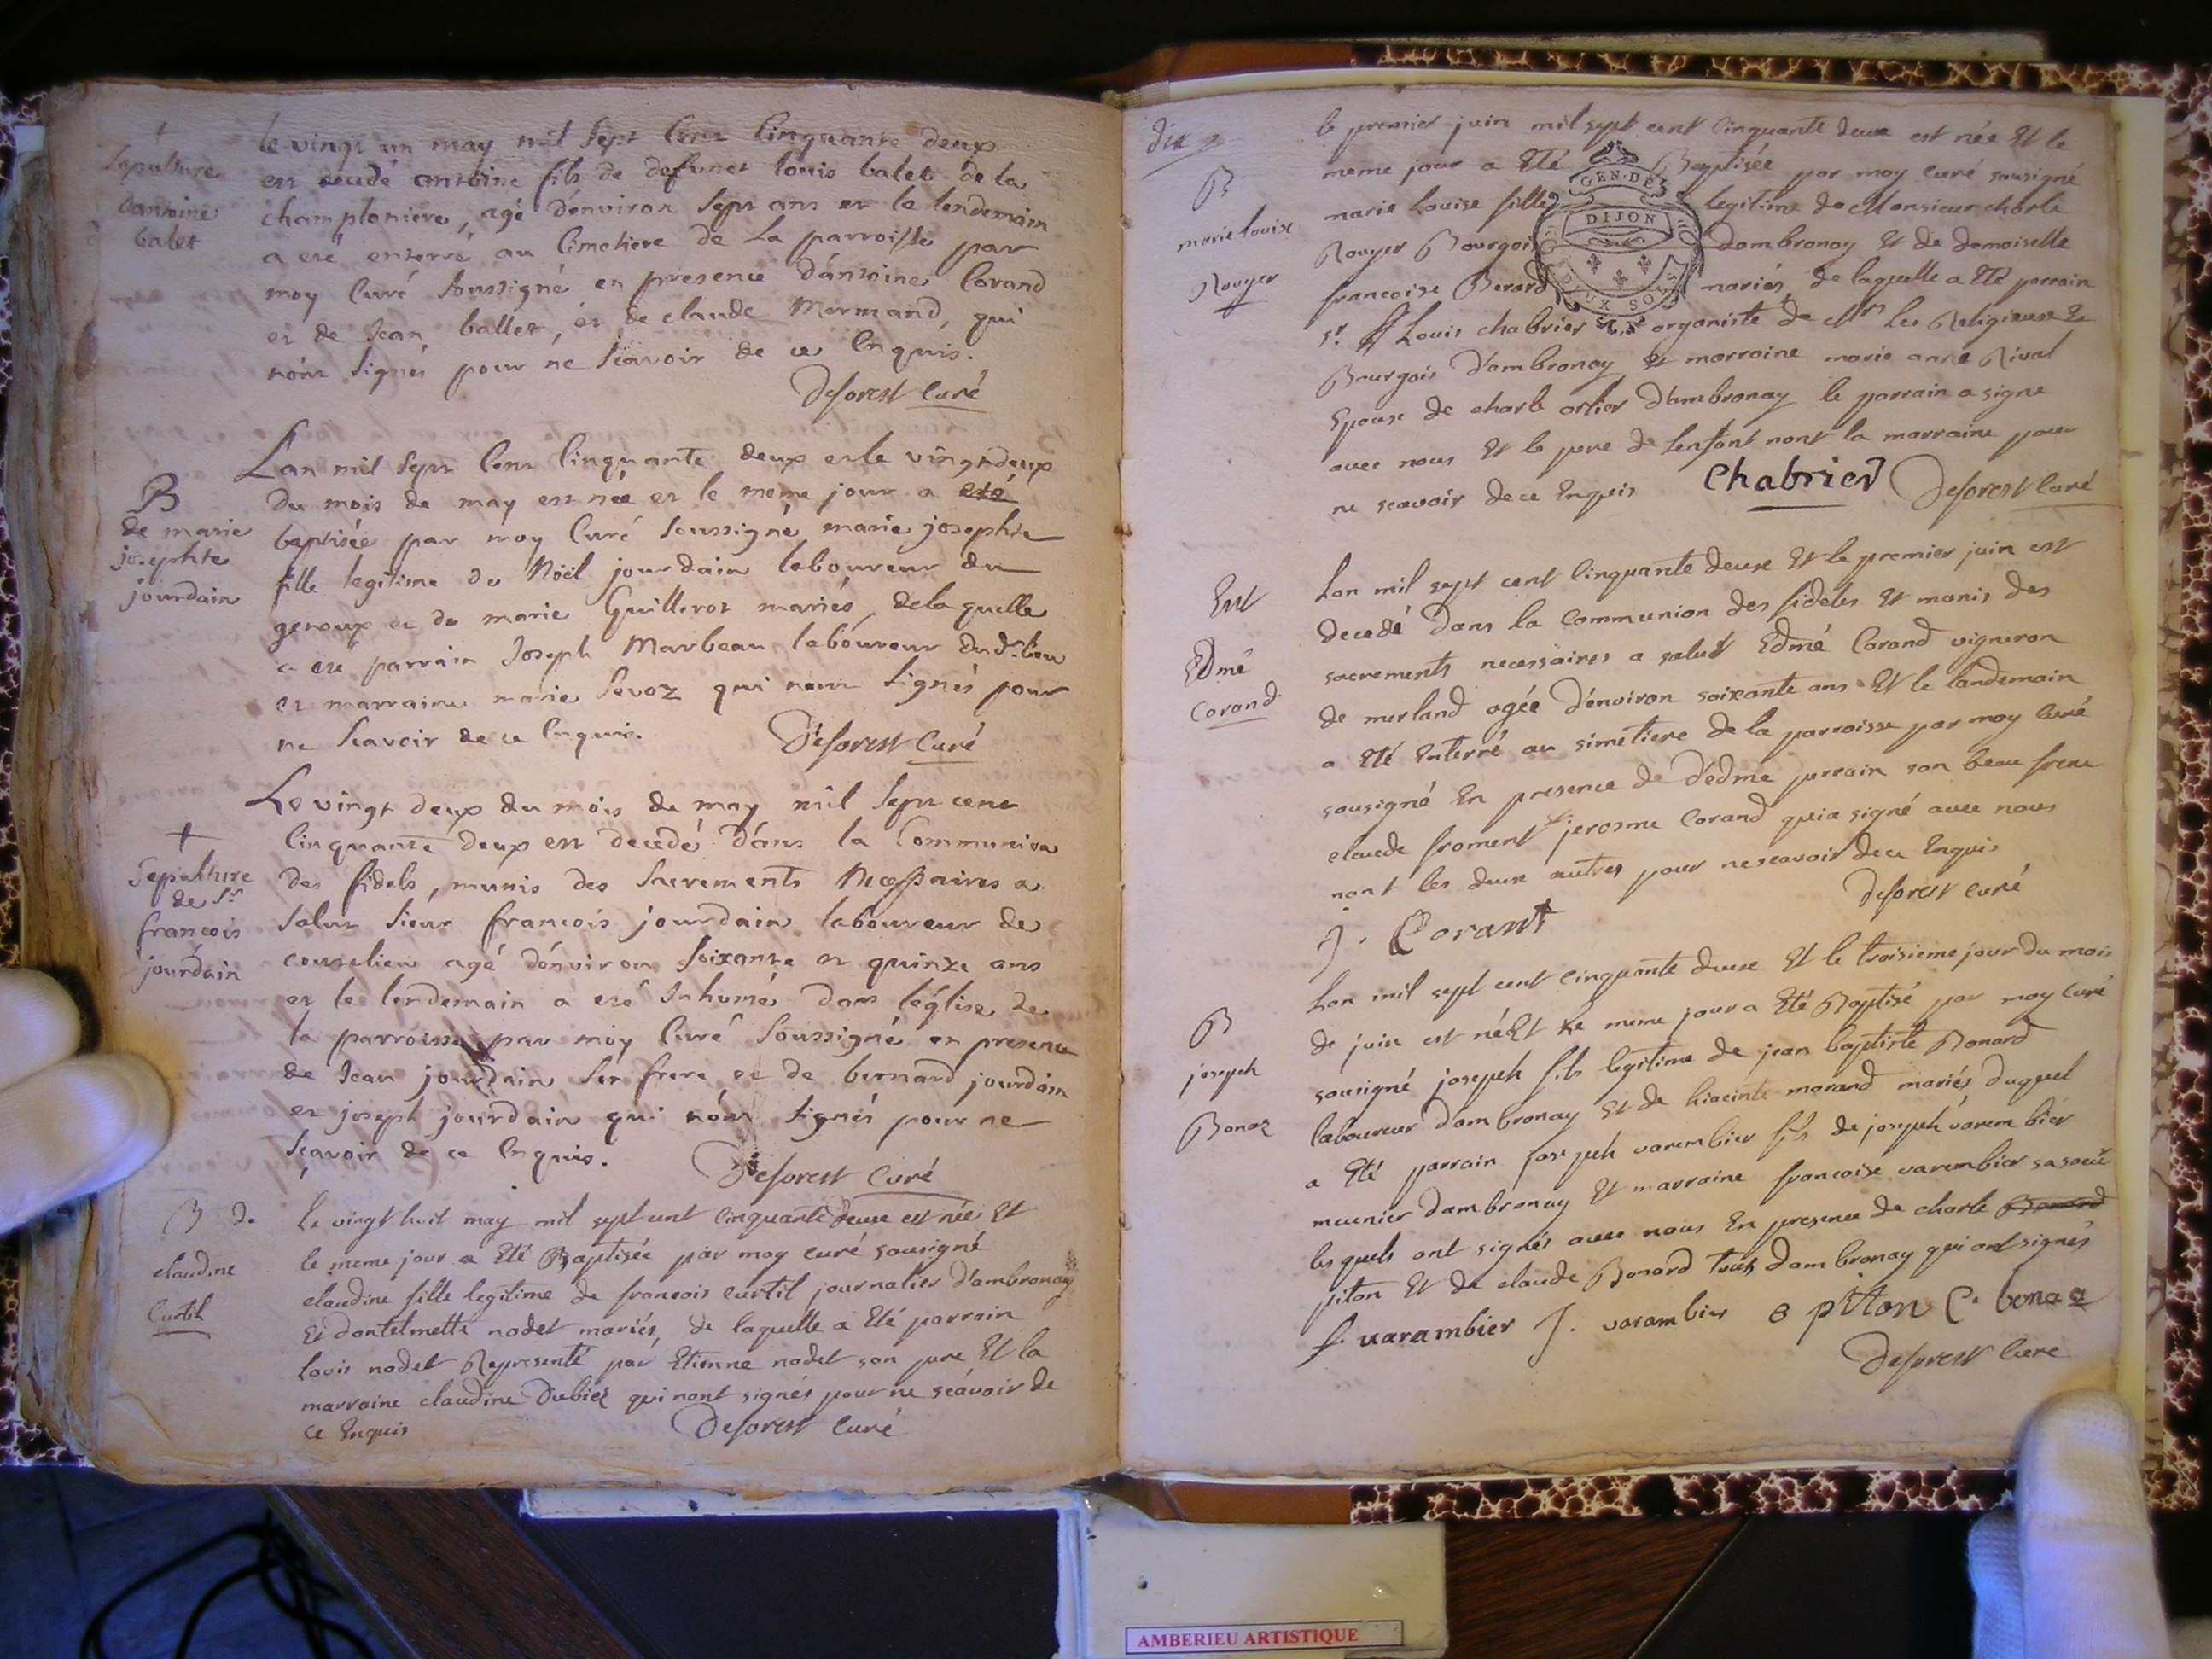 le vingt un may mil sept cent cinquante deux
est decedé antoine fils de defunct louis balet de la
championiere, agé d'environ sept ans et le lendemain
a eté enterré au Cimetiere de la parroisse par
moy Curé soussigné en presence d'antoine Corand
et de Jean ballet, et de claude Mermand, qui
n'ont signés pour ne scavoir de ce Enquis.
Deforest Curé
+
Sepulture
d'antoine
balet
L'an mil sept cens cinquante deux et le vingtdeux
du mois de may est née et le meme jour a eté
baptisée par moy Curé soussigné marie josephte
fille legitime de Noël jourdain laboureur du
genoux et de marie Guillerot mariés, de la quelle
a eté parrain Joseph Marbeau laboureur dud. lieu
et marraine marie Sevoz qui n'ont signés pour
ne scavoir de ce Enquis.
Deforest Curé
B
de marie
josephte
jourdain
Le vingt deux du mois de may mil sept cent
Cinquante deux est decedé dans la Communion
des fidels, munis des Sacrements Necessaires a
salut sieur françois jourdain laboureur de
coutelieu agé d'environ soixante et quinze ans
et le lendemain a eté Inhumé dans l'église de
la parroisse par moy Curé soussigné en presence
de Jean jourdain son frere et de bernard jourdain
et joseph jourdain qui n'ont signés pour ne
scavoir de ce Enquis.
Deforest Curé
+
Sepulture
de Sr
francois
jourdain
Le vingt huit may mil sept cent cinquante deux est née Et
le meme jour a Eté Baptisée par moy curé sousigné
claudine fille legitime de francois curtil journalier d'ambronay
Et dantelmette nodet mariés, de laquelle a Eté parrain
louis nodet Representé par Etienne nodet son pere Et la
marraine claudine Dubiez qui nont signés pour ne scavoir de
ce Enquis
Deforest Curé
B de
claudine
Curtil
dix
le premier juin mil sept cent cinquante deux est née Et le
meme jour a Eté Baptisée par moy curé sousigné
marie Louise fille legitime de Monsieur charle
Rouyer Bourgois dambronay Et de demoiselle
francoise Berard mariés, de laquelle a Eté parrain
sr. Louis chabrier organiste de Mrs Les Religieux &
Bourgois d'ambronay Et marraine marie anne Rival
Epouse de charle ortier d'ambronay le parrain a signé
avec nous Et le pere de lenfant nont la marraine pour
ne scavoir de ce Enquis
Chabrier Deforest Curé
GEN. DE
DIJON
DEUX SOLS
B
marie louise
Rouyer
Lan mil sept cent cinquante deux Et le premier juin est
decedé dans la communion des fideles Et munis des
sacrements necessaires a salut Edmé Corand vigneron
de merland agée d'environ soixante ans Et le landemain
a Eté Enterré au simetiere de la parroisse par moy curé
sousigné En presence de d'édmé perrain son beau frere
claude froment jerosme Corand qui a signé avec nous
nont les deux autres pour ne scavoir de ce Enquis
Deforest curé
J. Corant
Ent
Edmé
Corand
Lan mil sept cent cinquante deux Et le troisieme jour du mois
de juin est né Et le meme jour a Eté Baptisé par moy curé
sousigné joseph fils legitime de jean baptiste Bonard
laboureur dambronay Et de hiacinte morand mariés duquel
a Eté parrain joseph varembier fils de joseph varembier
meunier dambronay Et marraine francoise varembier sa soeur
lesquels ont signés avec nous En presence de charle Bonard
piton Et de claude Bonard tous dambronay qui ont signés
f. uarambier J. varambier c piton C. bonaz
Deforest Curé
B
joseph
Bonaz
AMBERIEU ARTISTIQUE